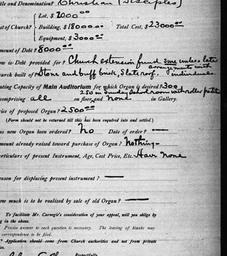 tle and Denomination? Christian (Disciples)
Lot, $ 2000
st of Church? Building, $ 18000 Total Cost, $ 23000
Equipment, $ 3000
mount of Debt? 8000
is Debt provided for? Church extension fund some unless later
arrangements with
urch built of Stone and buff brick, Slate roof. individuals
ating Capacity of Main Auditorium for which Organ is desired? 300
250 in Sunday School room with roller
omprising all on floor, and None in Gallery.
ice of proposed Organ? 2500
(Form should not be returned till this has been enquired into and settled.)
as new Organ been ordered? No Date of order?
mount already raised toward purchase of Organ? Nothing
articulars of present Instrument, Age, Cost Price, Etc. Have None
eason for displacing present instrument?
ow much is to be realized by sale of old Organ?
To facilitate Mr. Carnegie's consideration of your appeal, will you oblige by
ng in the above.
Precise answer to each question is necessary. The leaving of blanks may
correspondence to be filed.
Application should come from Church authorities and not from private